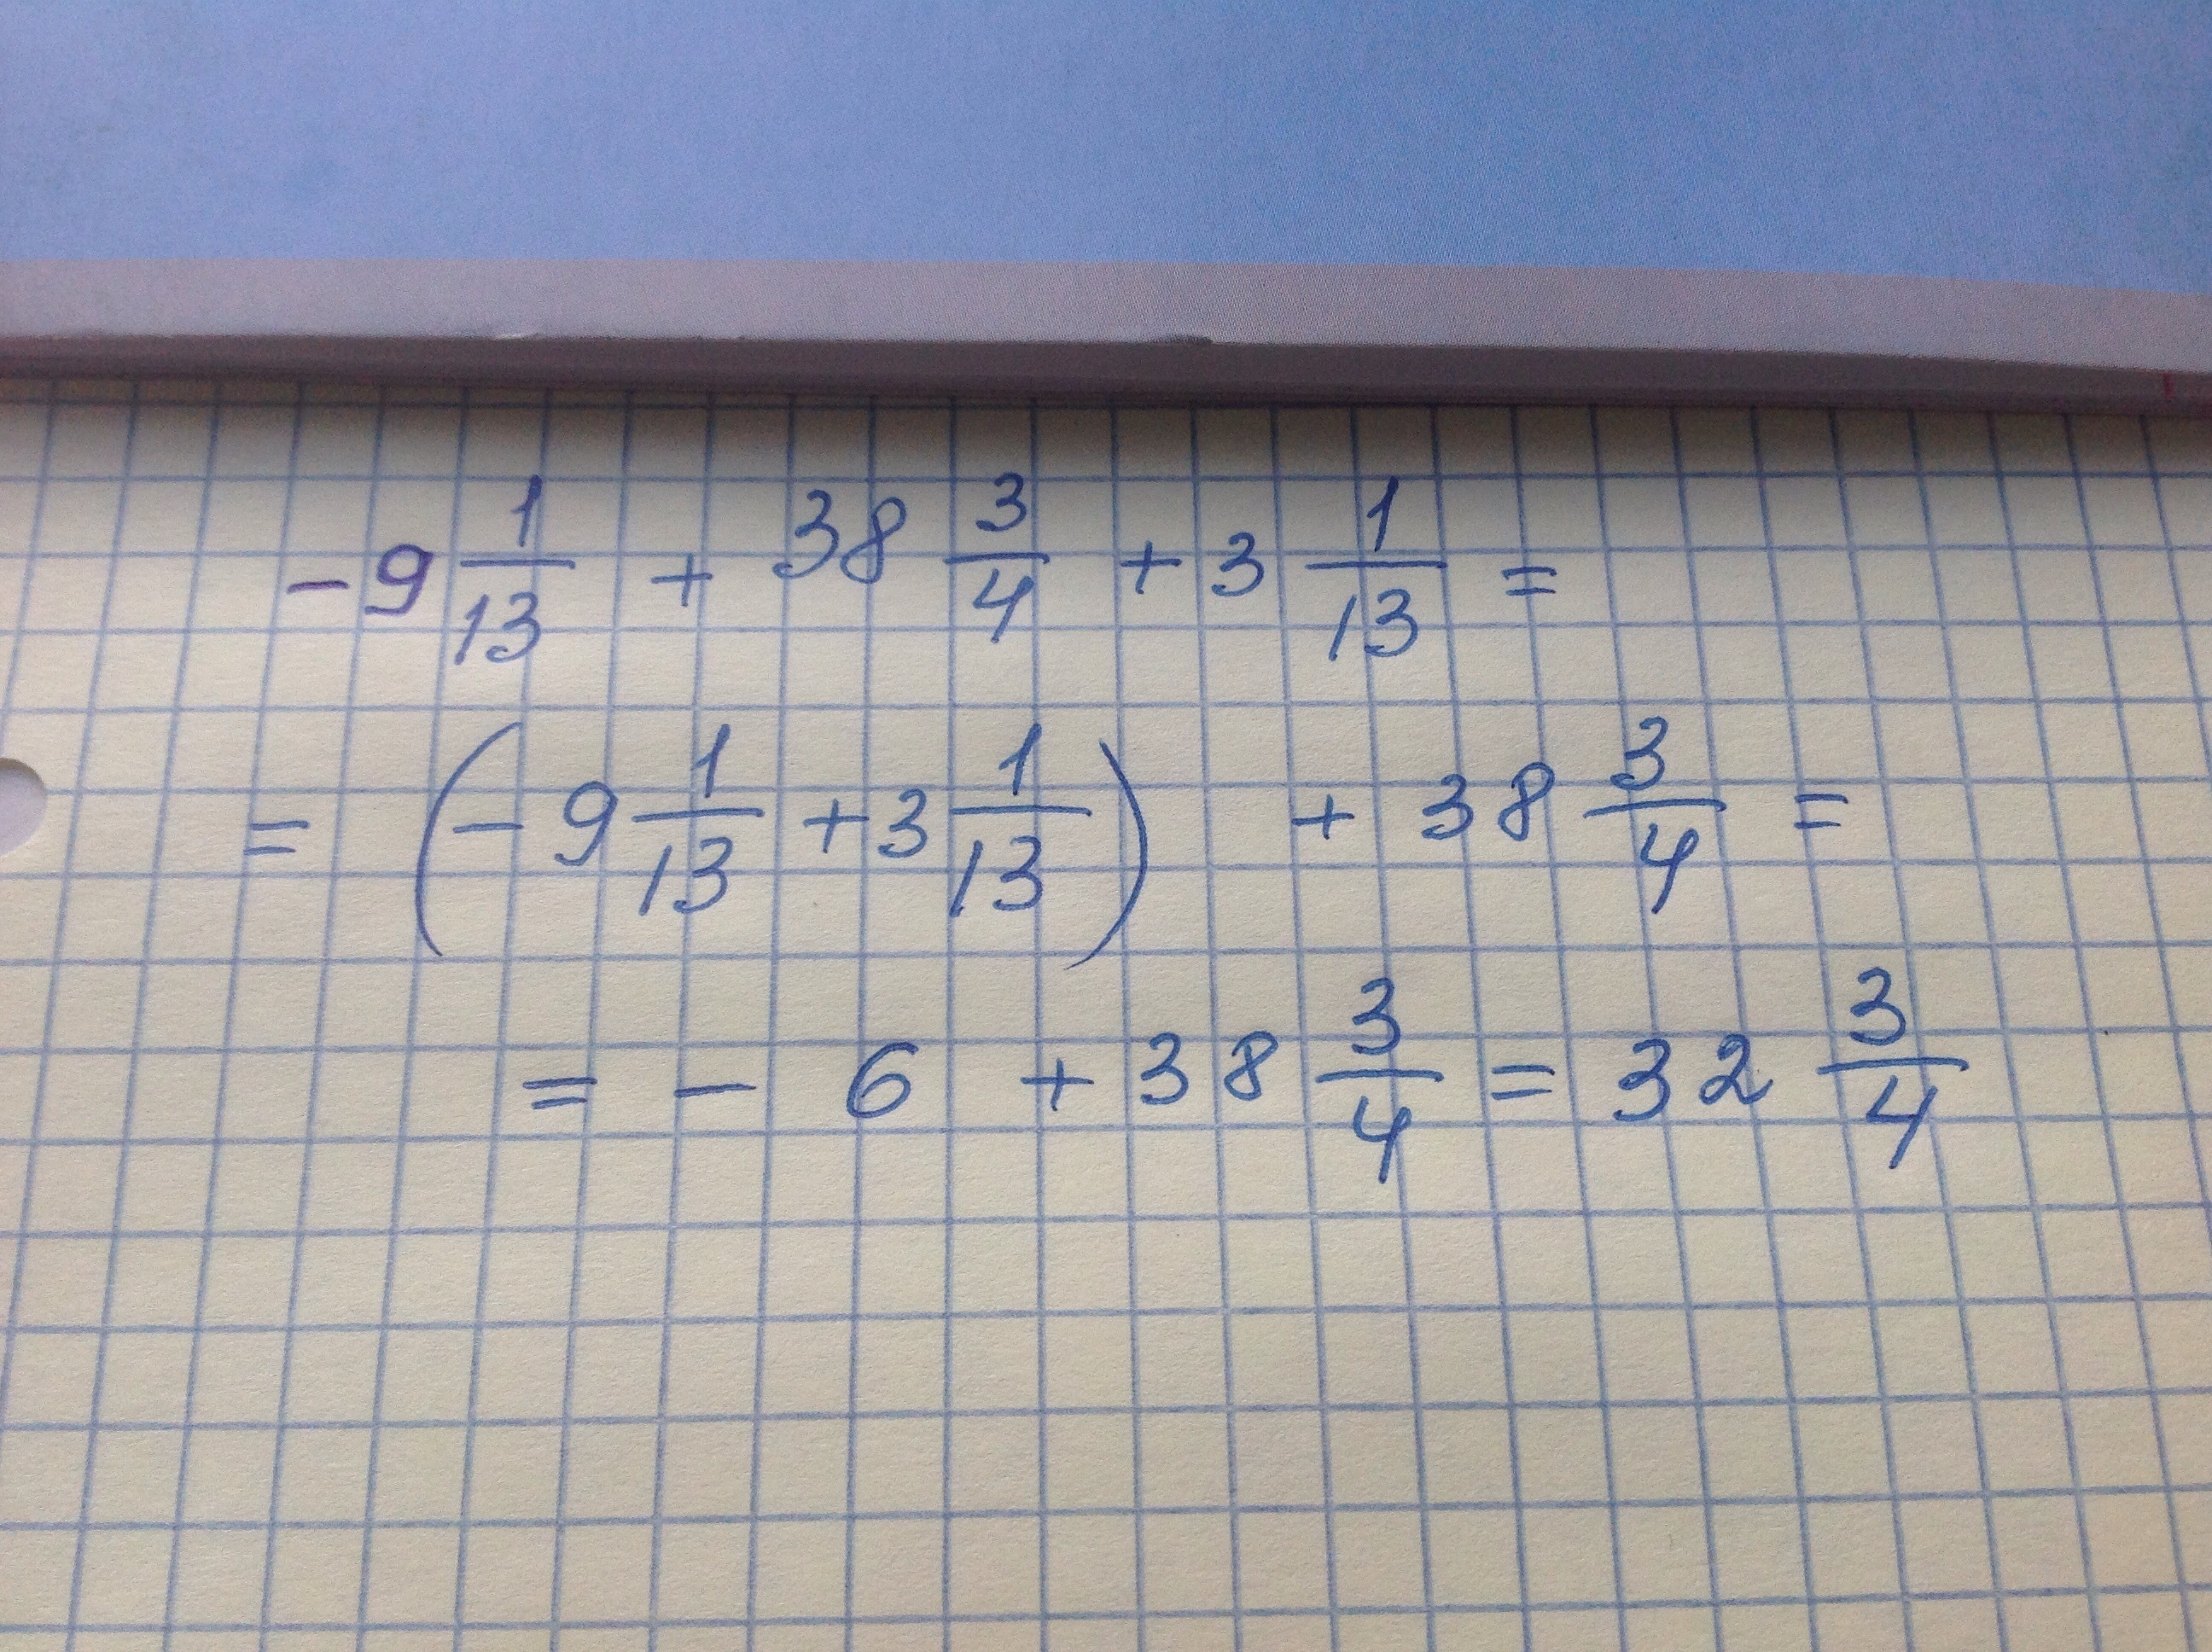 -9 1/13 + 38 3/4 + 3 1/13 =
= (-9 1/13 + 3 1/13) + 38 3/4 =
= - 6 + 38 3/4 = 32 3/4